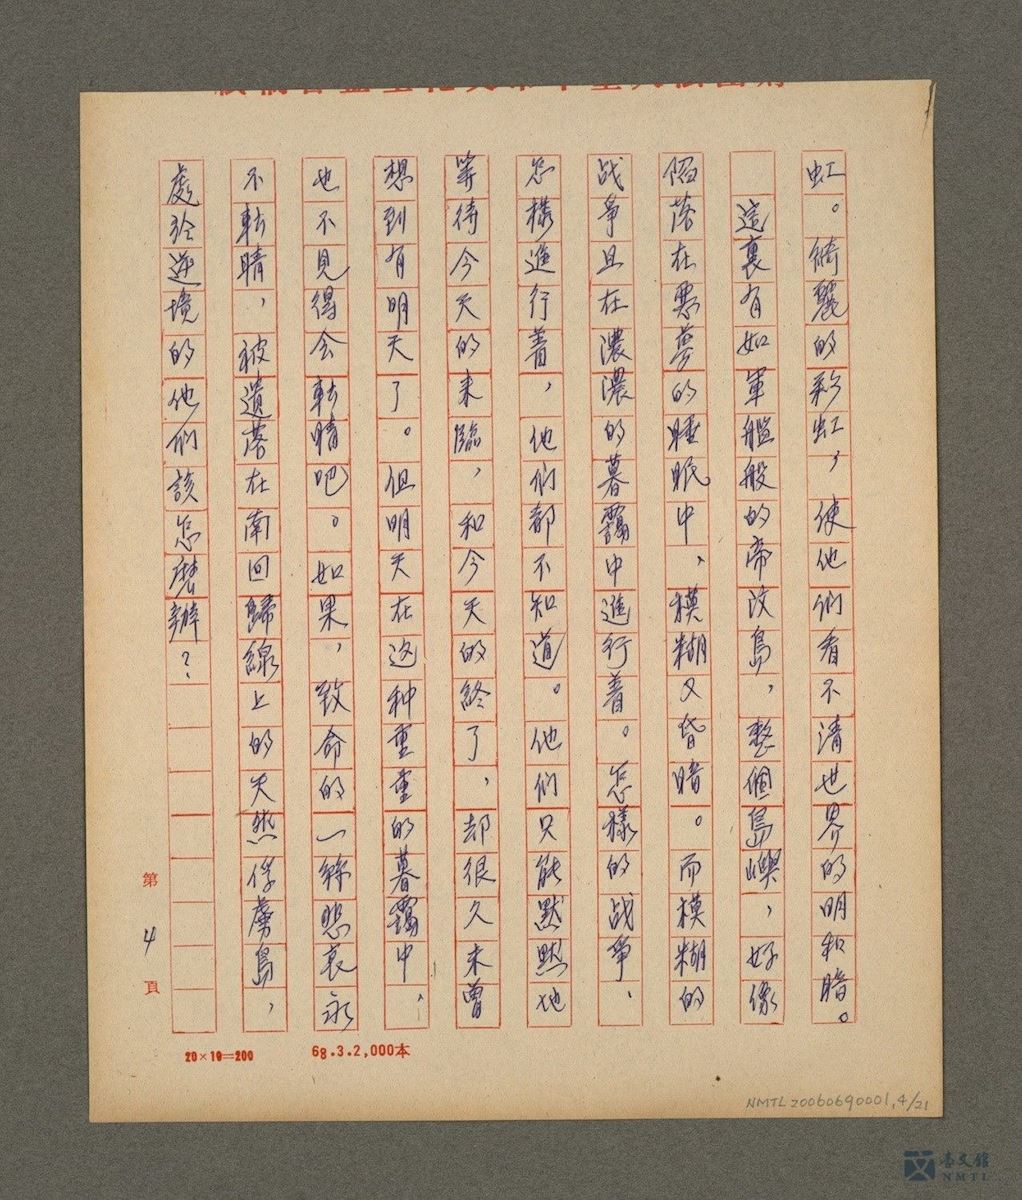 虹。綺麗的彩虹,使他们看不清世界的明和暗。
這裏有如軍艦般的帝汶島,整個島嶼,好像
陷落在惡夢的睡眠中、模糊又昏暗。而模糊的
战爭且在濃濃的暮靄中進行着。怎樣的战爭、
怎樣進行着,他们都不知道。他们只能默默地
等待今天的来臨,和今天的終了,却很久未曾
想到有明天了。但明天在这种重重的暮靄中、
也不見得会転晴吧。如果,致命的一絲悲哀永
不転晴,被遺落在南回歸線上的天然俘虜島,
處於逆境的他们該怎麽辦?
第4頁
20×10=200
68.3.2,000本
NMTL20060690001,4/21
台文館
NMTL